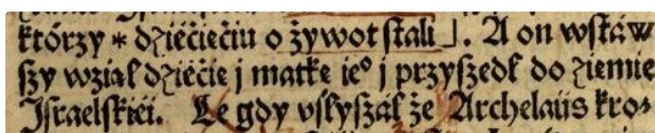 którzy * dziéćiećiu o żywot ſtali ⌋. A on wſtáw
ſzy wziął dziéćię j matkę ieº j przyſzedł do ziemie
Iſraelſkiéi. Le gdy vſlyſzáł że Archelaüs kro⸗